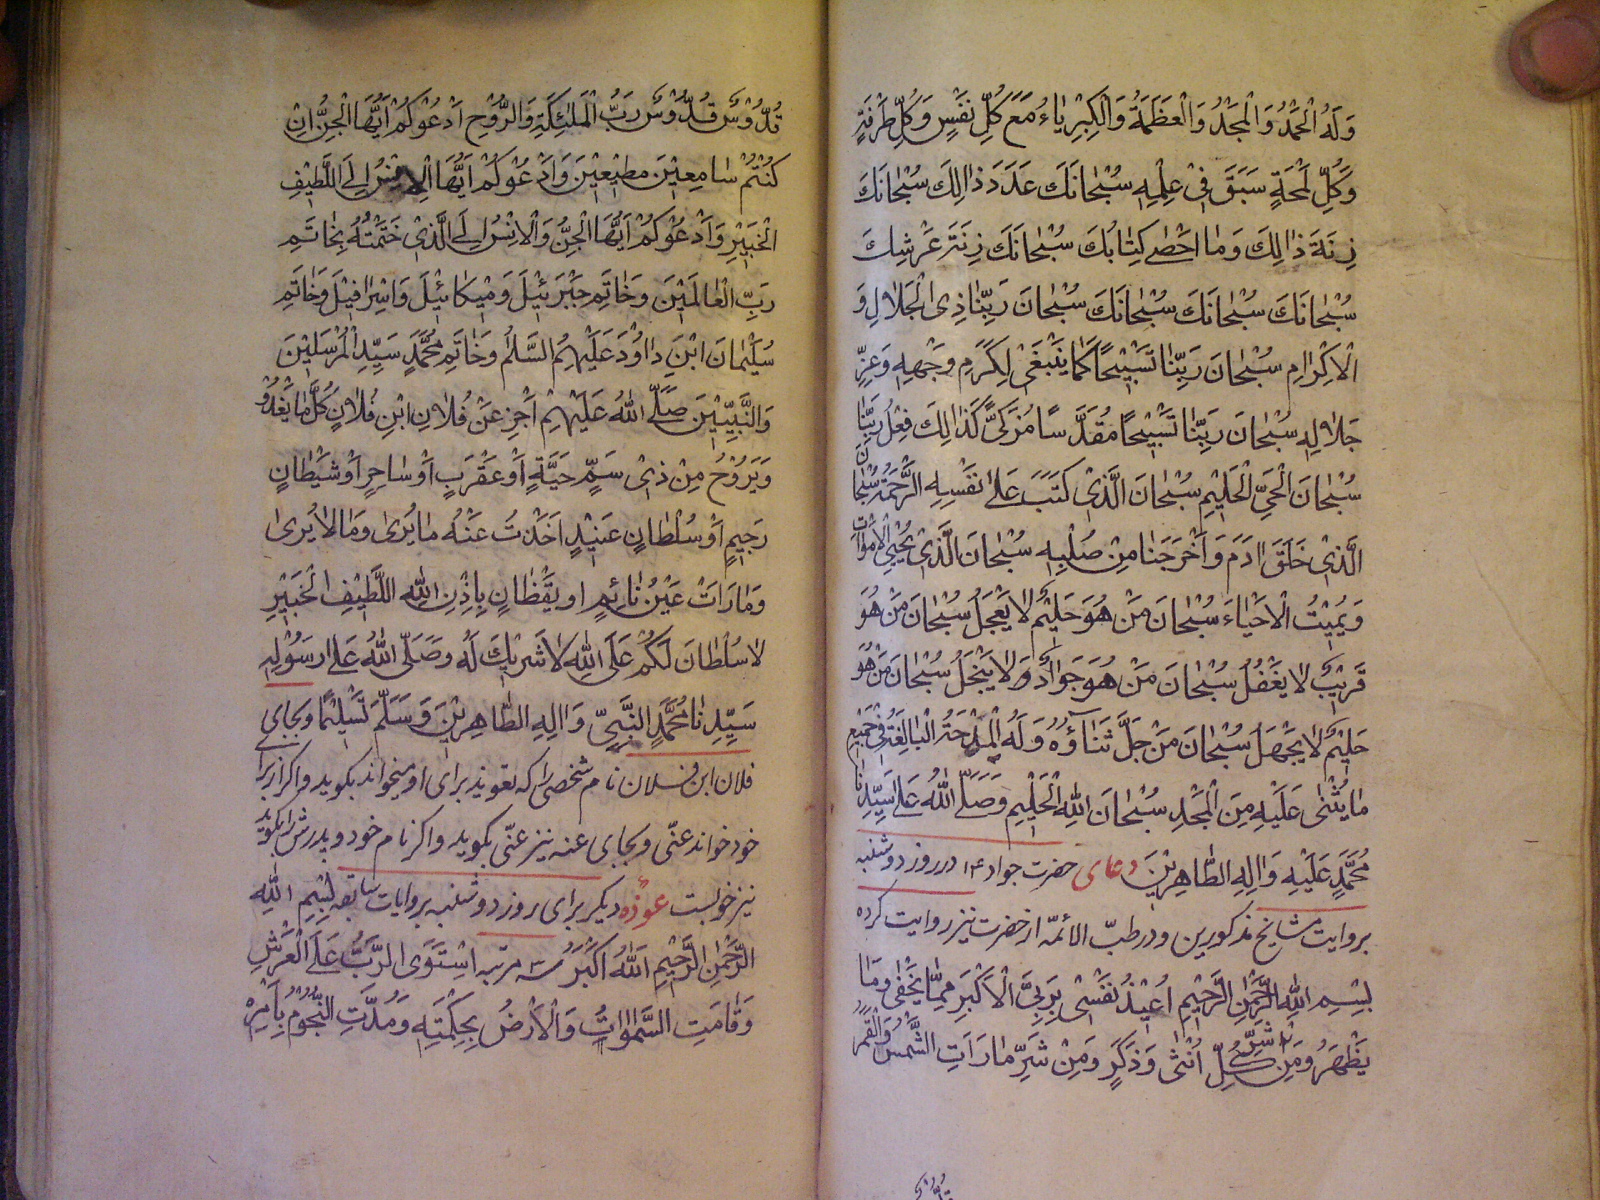 وَلَهُ الْحَمْدُ وَالْمَجْدُ وَالْعَظَمَةُ وَالْكِبْرِيٰاءُ مَعَ كُلِّ نَفَسٍ وَكُلِّ طَرْفَةٍ
وَكُلِّ لَمْحَةٍ سَبَقَ فِي عِلْمِهِ سُبْحٰانَكَ عَدَدَ ذٰلِكَ سُبْحٰانَكَ
زِنَةَ ذٰلِكَ وَمٰا اَحْصٰى كِتٰابُكَ سُبْحٰانَكَ زِنَةَ عَرْشِكَ
سُبْحٰانَكَ سُبْحٰانَكَ سُبْحٰانَكَ سُبْحٰانَ رَبِّنٰا ذِى الْجَلٰالِ وَ
الْاِكْرٰامِ سُبْحٰانَ رَبِّنٰا تَسْبِيْحًا كَمٰا يَنْبَغٖى لِكَرَمِ وَجْهِهٖ وَعِزِّ
جَلٰالِهٖ سُبْحٰانَ رَبِّنٰا تَسْبِيْحًا مُقَدَّسًا مُزَكًّى كَذٰلِكَ فِعْلُ رَبِّنٰا
سُبْحٰانَ الْحَيِّ الْحَلِيْمِ سُبْحٰانَ الَّذِيْ كَتَبَ عَلىٰ نَفْسِهِ الرَّحْمَةَ سُبْحٰانَ
الَّذِيْ خَلَقَ اٰدَمَ وَاَخْرَجَنٰا مِنْ صُلْبِهٖ سُبْحٰانَ الَّذِيْ يُحْيِي الْاَمْوٰاتَ
وَيُمِيْتُ الْاَحْيٰاءَ سُبْحٰانَ مَنْ هُوَ حَلِيْمٌ لٰا يَعْجَلُ سُبْحٰانَ مَنْ هُوَ
قَرِيْبٌ لٰا يَغْفُلُ سُبْحٰانَ مَنْ هُوَ جَوٰادٌ لٰا يَبْخَلُ سُبْحٰانَ مَنْ هُوَ
حَلِيْمٌ لٰا يَجْهَلُ سُبْحٰانَ مَنْ جَلَّ ثَنٰاؤُهُ وَلَهُ الْمِدْحَةُ الْبٰالِغَةُ فِيْ جَمِيْعِ
مٰا يُثْنٰى عَلَيْهِ مِنَ الْمَجْدِ سُبْحٰانَ اللهِ الْحَلِيْمِ وَصَلَّى اللهُ عَلىٰ سَيِّدِنٰا
مُحَمَّدٍ عَلَيْهِ وَاٰلِهِ الطّٰاهِرِيْنَ دعاى حضرت جواد ع در روز دوشنبه
بروايت مشايخ مذكورين و در طبّ الائمّه از حضرت نيز روايت كرده
بِسْمِ اللهِ الرَّحْمٰنِ الرَّحِيْمِ اُعِيْذُ نَفْسِيْ بِرَبِّيَ الْاَكْبَرِ مِمّٰا يَخْفٰى وَمٰا
يَظْهَرُ وَمِنْ شَرِّ كُلِّ اُنْثٰى وَذَكَرٍ وَمِنْ شَرِّ مٰا رَاَتِ الشَّمْسُ وَالْقَمَرُ
قُدُّوْسٌ قُدُّوْسٌ رَبُّ الْمَلٰئِكَةِ وَالرُّوْحِ اَدْعُوْكُمْ اَيُّهَا الْجِنُّ اِنْ
كُنْتُمْ سٰامِعِيْنَ مُطِيْعِيْنَ وَاَدْعُوْكُمْ اَيُّهَا الْاِنْسُ اِلَى اللَّطِيْفِ
الْخَبِيْرِ وَاَدْعُوْكُمْ اَيُّهَا الْجِنُّ وَالْاِنْسُ اِلَى الَّذِيْ خَتَمْتُهُ بِخٰاتَمِ
رَبِّ الْعٰالَمِيْنَ وَخٰاتَمِ جَبْرَئِيْلَ وَمِيْكٰائِيْلَ وَاِسْرٰافِيْلَ وَخٰاتَمِ
سُلَيْمٰانَ ابْنِ دٰاوُدَ عَلَيْهِمُ السَّلٰمُ وَخٰاتَمِ مُحَمَّدٍ سَيِّدِ الْمُرْسَلِيْنَ
وَالنَّبِيّيْنَ صَلَّى اللهُ عَلَيْهِمْ اَجِزْ عَنْ فُلٰانِ ابْنِ فُلٰانٍ كُلَّمٰا يَغْدُوْ
وَيَرُوْحُ مِنْ ذِيْ سَمٍّ حَيَّةٍ اَوْ عَقْرَبٍ اَوْ سٰاحِرٍ اَوْ شَيْطٰانٍ
رَجِيْمٍ اَوْ سُلْطٰانٍ عَنِيْدٍ اَخَذْتُ عَنْهُ مٰا يُرىٰ وَمٰا لٰا يُرىٰ
وَمٰا رَاَتْ عَيْنُ نٰائِمٍ او يَقْظٰانٍ بِاِذْنِ اللهِ اللَّطِيْفِ الْخَبِيْرِ
لٰا سُلْطٰانَ لَكُمْ عَلَى اللهِ لٰا شَرِيْكَ لَهُ وَصَلَّى اللهُ عَلىٰ رَسُوْلِهٖ
سَيِّدِنٰا مُحَمَّدٍ النَّبِيِّ وَاٰلِهِ الطّٰاهِرِيْنَ وَسَلَّمَ تَسْلِيْمًا و بجاى
فلان ابن فلان نام شخصى را كه تعويذ براى او ميخواند بكويد و اكر از براى
خود خواند عنّى و بجاى عنه نيز عنّى بكويد و اكر نام خود و پدرش را بكويد
نيز خوبست عوذه ديكر براى روز دوشنبه بروايات سابقه بِسْمِ اللهِ
الرَّحْمٰنِ الرَّحِيْمِ اَللهُ اَكْبَرُ ٣ مرتبه اسْتَوَى الرَّبُّ عَلَى الْعَرْشِ
وَقٰامَتِ السَّمٰوٰاتُ وَالْاَرْضُ بِحِكْمَتِهٖ وَمُدَّتِ النُّجُوْمُ بِاَمْرِهٖ